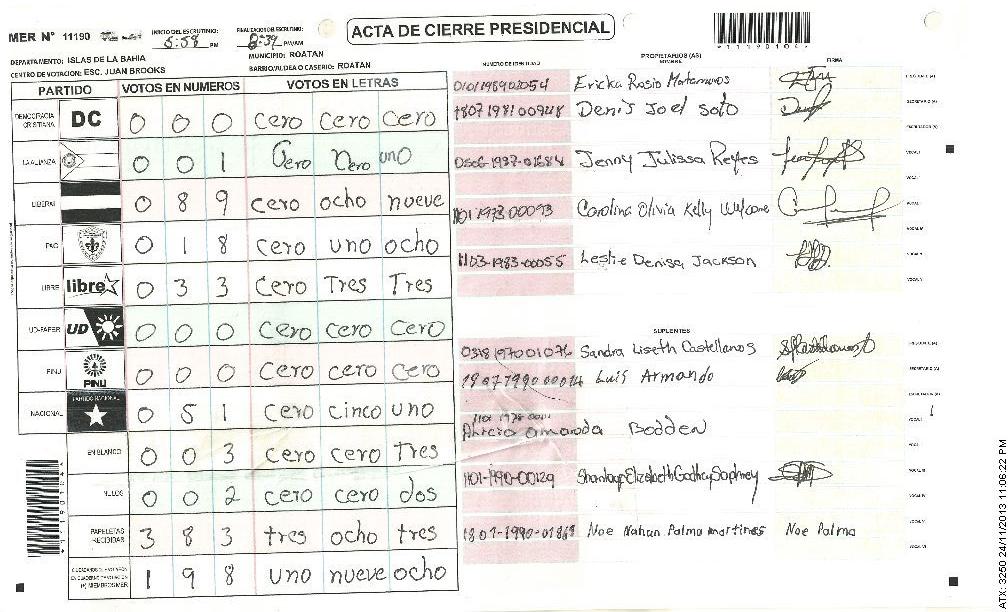 MER N° 11190
INICIO DEL ESCRUTINIO: 5:58 PM
FINALIZACION ESCRUTINIO: 8:39 PM/AM
ACTA DE CIERRE PRESIDENCIAL
*11190104*
DEPARTAMENTO: ISLAS DE LA BAHIA
MUNICIPIO: ROATAN
CENTRO DE VOTACION: ESC. JUAN BROOKS
BARRIO/ALDEA O CASERIO: ROATAN
PARTIDO VOTOS EN NUMEROS VOTOS EN LETRAS
DEMOCRACIA CRISTIANA DC 0 0 0 cero cero cero
LA ALIANZA 0 0 1 Cero Cero uno
LIBERAL 0 8 9 cero ocho nueve
PAC 0 1 8 cero uno ocho
LIBRE libre 0 3 3 Cero Tres Tres
UD-FAPER UD 0 0 0 cero cero cero
PINU PINU 0 0 0 cero cero cero
NACIONAL PARTIDO NACIONAL 0 5 1 cero cinco uno
EN BLANCO 0 0 3 cero cero Tres
NULOS 0 0 2 cero cero dos
PAPELETAS RECIBIDAS 3 8 3 tres ocho tres
1 9 8 uno nueve ocho
NUMERO DE IDENTIDAD
PROPIETARIOS (AS)
NOMBRE
FIRMA
0101198902054 Ericka Rosio Matamoros PRESIDENTE (A)
1807198100948 Denis Joel soto SECRETARIO (A)
ESCRUTADOR (A)
0506-1937-01684 Jenny Julissa Reyes VOCAL I
1101 1973 00093 Carolina Olivia Kelly Welcome
VOCAL III
1103-1983-00055 Leslie Denisa Jackson VOCAL IV
VOCAL V
SUPLENTES
0318197001076 Sandra Liseth Castellanos PRESIDENTE (A)
1807199000014 Luis Armando SECRETARIO (A)
ESCRUTADOR (A)
Amanda Bodden VOCAL I
1101-1990-00129 VOCAL III
VOCAL IV
1807-1990-01868 Noe Nahun Palma martines Noe Palma VOCAL V
VOCAL VI
*11190104*
ATX: 3250 24/11/2013 11:05:22 PM